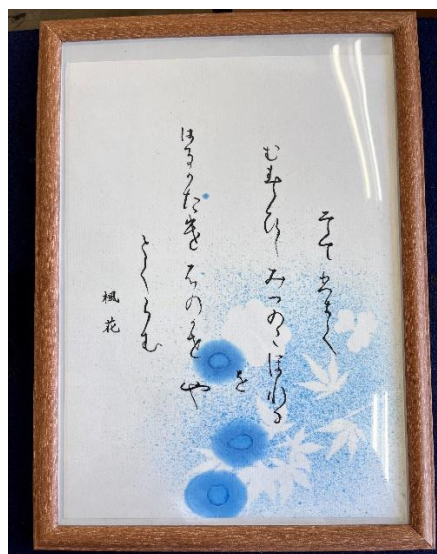 そてひちて
むすひしみつのこほれる
を
はるたつけふのかせや
とくらむ
楓花